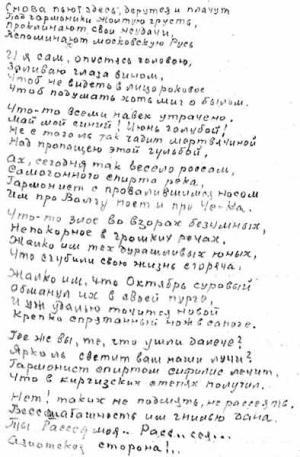 Снова пьют здесь, дерутся и плачут
Под гармоники желтую грусть,
Проклинают свои неудачи,
Вспоминают московскую Русь
И я сам, опустясь головою,
Заливаю глаза вином,
Чтоб не видеть в лицо роковое
Чтоб подумать хоть миг о былом.
Что-то всеми навек утрачено.
Май мой синий! Июнь голубой!
Не с того ль так чадит мертвячиной
Над пропащею этой гульбой,
Ах, сегодня так весело россам,
Самогонного спирта река,
Гармонист с провалившимся носом
Им про Волгу поет и про Че-ка.
Что-то злое во взорах безумных,
Непокорное в громких речах.
Жалко им тех дурашливых юных,
Что сгубили свою жизнь сгоряча.
Жалко им, что Октябрь суровый
Обманул их в своей пурге,
И уж удалью точится новой
Крепко спрятанный нож в сапоге.
Где же вы, те, что ушли далече?
Ярко ль светит вам наши лучи?
Гармонист спиртом сифилис лечит,
Что в киргизских степях получил.
Нет! таких не подмять, не рассеять.
Бесшабашность им гнилью дана.
Ты Рассея моя.. Расс..сея...
Азиатская сторона!..